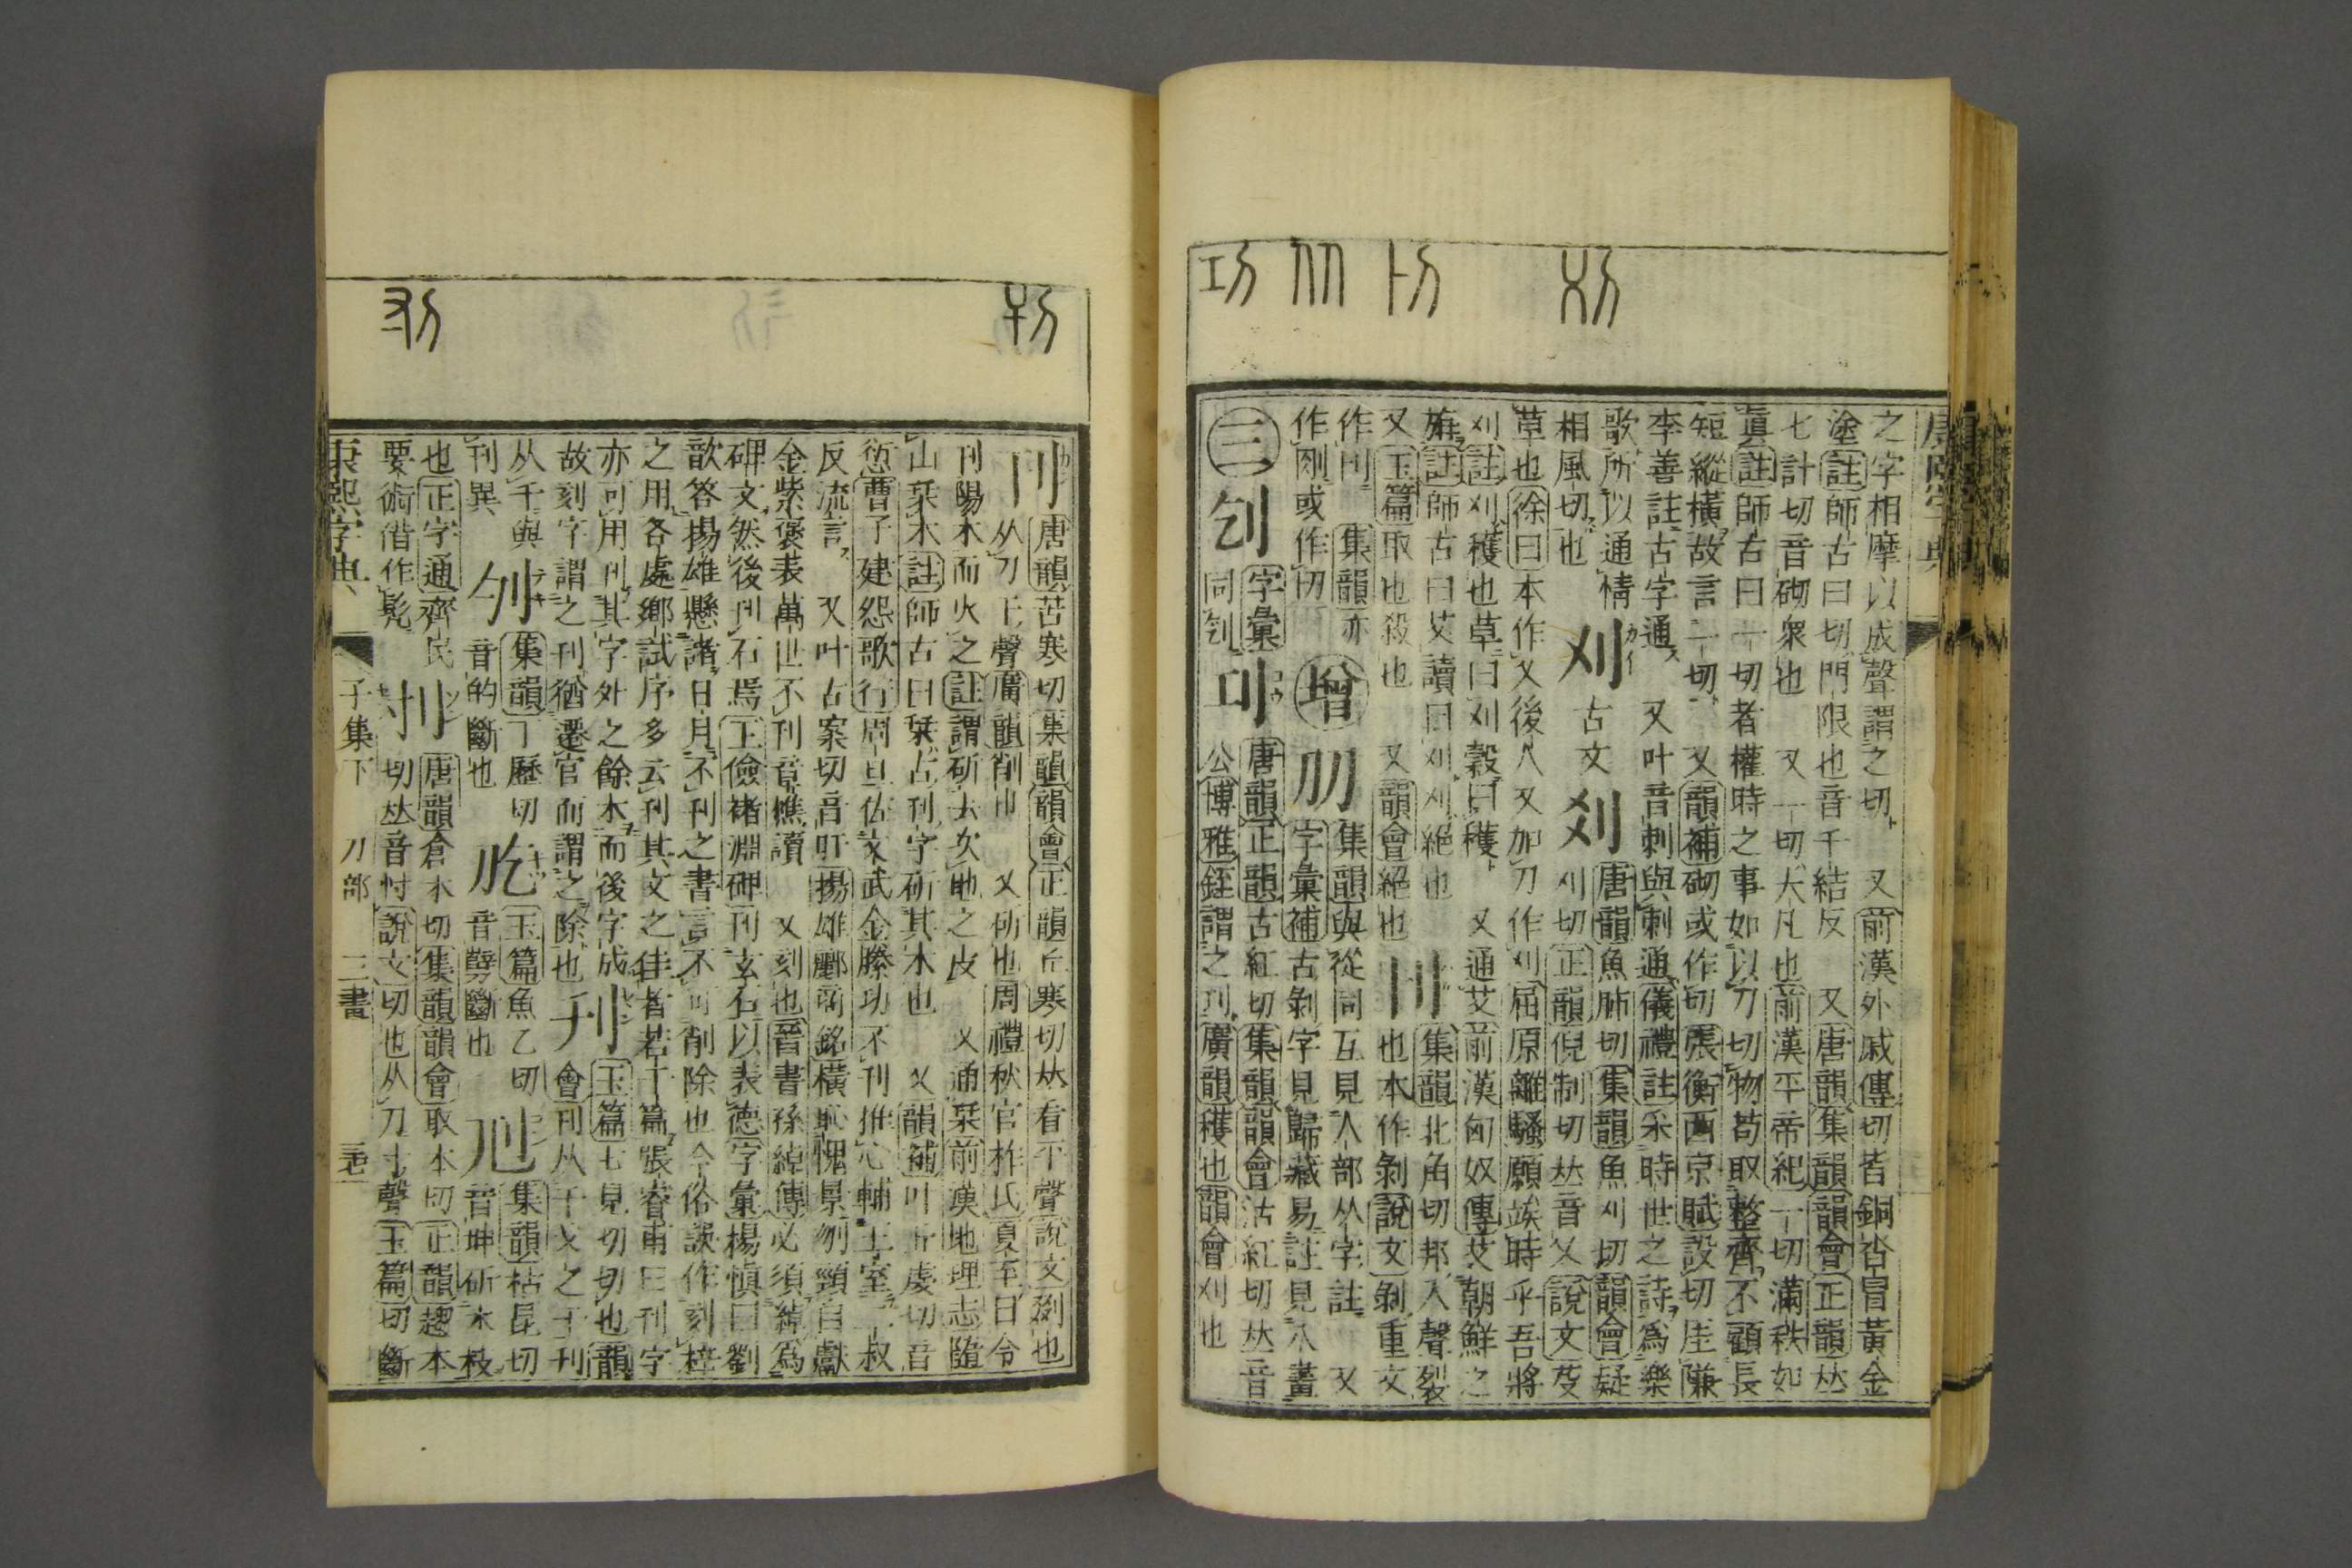 之字相摩以成聲謂之切 又前漢外戚傳切皆銅沓冒黃金
塗註師古曰切門限也音千結反 又唐韻集韻韻會正韻𠀤
七計切音砌衆也 又一切大凡也前漢平帝紀一切滿秩如
眞註師古曰一切者權時之事如以刀切物苟取整齊不顧長
短縱橫故言一切 又韻補砌或作切張衡西京賦設切厓隒
李善註古字通 又叶音刺與刺通儀禮註采時世之詩爲樂
歌所以通情
相風切也
刈
古文
㓼
唐韻魚肺切集韻魚刈切韻會疑
刈切正韻倪制切𠀤音乂說文芟
草也徐曰本作乂後人又加刀作刈屈原離騷願竢時乎吾將
刈註刈穫也草曰刈穀曰穫 又通艾前漢匈奴傳艾朝鮮之
旃註師古曰艾讀曰刈刈絕也
又玉篇取也殺也 又韻會絕也
集韻北角切邦入聲裂
也本作剝說文剝重文
作刂 集韻亦
作刚或作切
增
刅
集韻與從同互見人部从字註 又
字彙補古剝字見歸藏易註見八畫
三
刉
字彙
同刉
唐韻正韻古紅切集韻韻會沽紅切𠀤音
公博雅銍謂之刏廣韻穫也韻會刈也
刊
唐韻苦寒切集韻韻會正韻丘寒切𠀤看平聲說文剟也
从刀干聲廣韻削也 又斫也周禮秋官柞氏夏至日令
刊陽木而火之註謂斫去次地之皮 又通栞前漢地理志隨
山栞木註師古曰栞古刊字斫其木也 又韻補叶丘虔切音
愆曹子建怨歌行周旦佐文武金縢功不刊推心輔王室二叔
反流言 又叶古案切音旰揚雄酈商銘橫恥愧景刎頸自獻
金紫褒表萬世不刊章樵讀 又刻也晉書孫綽傳必須綽爲
碑文然後刊石焉王儉褚淵碑刊玄石以表德字彙楊愼曰劉
歆答揚雄懸諸日月不刊之書言不可削除也今俗誤作刻梓
之用各處鄉試序多云刊其文之佳者若干篇張睿甫曰刊字
亦可用刊其字外之餘木而後字成
故刻字謂之刊猶遷官而謂之除也
刋
玉篇七見切切也韻
會刊从干戈之干刋
从千與
刊異
𠚼
集韻丁歷切
音的斷也
刉
玉篇魚乙切
音孼斷也
集韻枯昆切
音坤斫木枝
也正字通齊民
要術借作髡
刌
唐韻倉本切集韻韻會取本切正韻趨本
切𠀤音忖說文切也从刀寸聲玉篇切斷
康熙字典
子集下 刀部 三畫